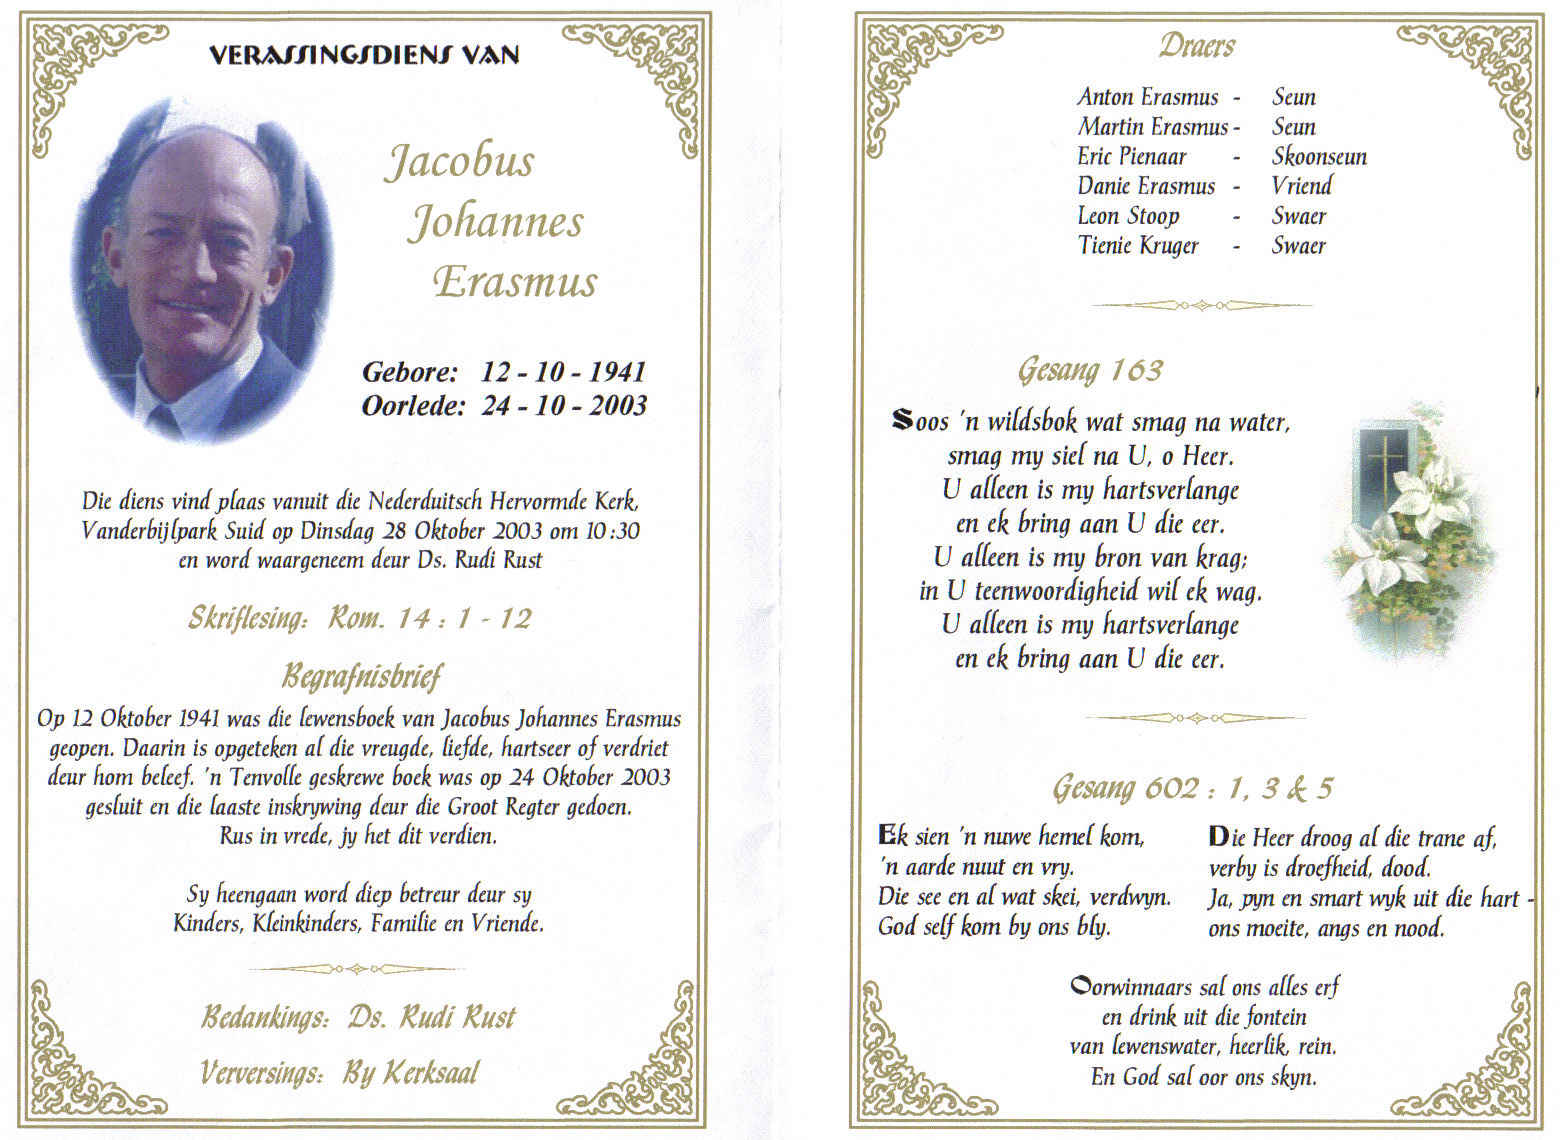 VERASSINGSDIENS VAN
Jacobus
Johannes
Erasmus
Gebore: 12 - 10 - 1941
Oorlede: 24 - 10 - 2003
Die diens vind plaas vanuit die Nederduitsch Hervormde Kerk,
Vanderbijlpark Suid op Dinsdag 28 Oktober 2003 om 10:30
en word waargeneem deur Ds. Rudi Rust
Skriflesing: Rom. 14 : 1 - 12
Begrafnisbrief
Op 12 Oktober 1941 was die lewensboek van Jacobus Johannes Erasmus
geopen. Daarin is opgeteken al die vreugde, liefde, hartseer of verdriet
deur hom beleef. 'n Tenvolle geskrewe boek was op 24 Oktober 2003
gesluit en die laaste inskrywing deur die Groot Regter gedoen.
Rus in vrede, jy het dit verdien.
Sy heengaan word diep betreur deur sy
Kinders, Kleinkinders, Familie en Vriende.
Bedankings: Ds. Rudi Rust
Verversings: By Kerksaal
Draers
Anton Erasmus - Seun
Martin Erasmus - Seun
Eric Pienaar - Skoonseun
Danie Erasmus - Vriend
Leon Stoop - Swaer
Tienie Kruger - Swaer
Gesang 163
Soos 'n wildsbok wat smag na water,
smag my siel na U, o Heer.
U alleen is my hartsverlange
en ek bring aan U die eer.
U alleen is my bron van krag;
in U teenwoordigheid wil ek wag.
U alleen is my hartsverlange
en ek bring aan U die eer.
Gesang 602 : 1, 3 & 5
Ek sien 'n nuwe hemel kom,
'n aarde nuut en vry.
Die see en al wat skei, verdwyn.
God self kom by ons bly.
Die Heer droog al die trane af,
verby is droefheid, dood.
Ja, pyn en smart wyk uit die hart -
ons moeite, angs en nood.
Oorwinnaars sal ons alles erf
en drink uit die fontein
van lewenswater, heerlik, rein.
En God sal oor ons skyn.